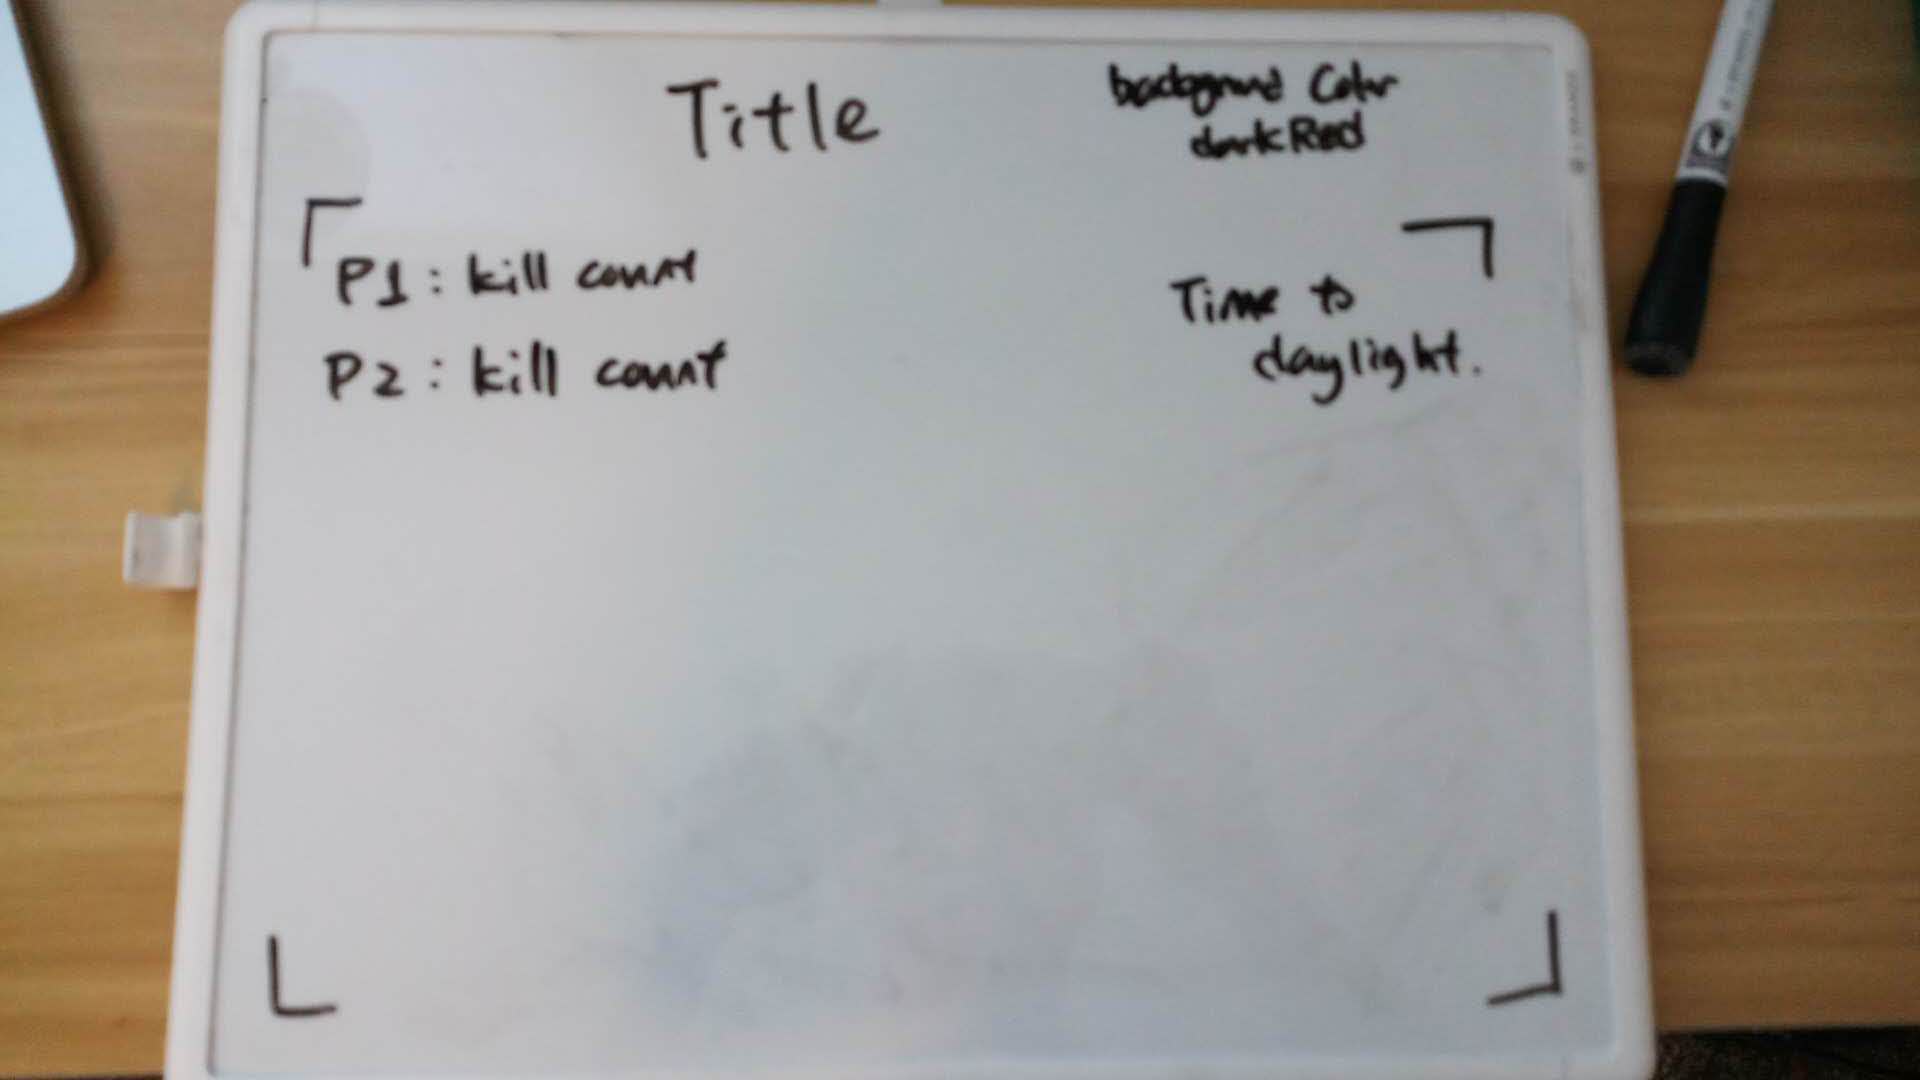 Title
background Color
darkRed
P1: kill count
P2: kill count
Time to
daylight.